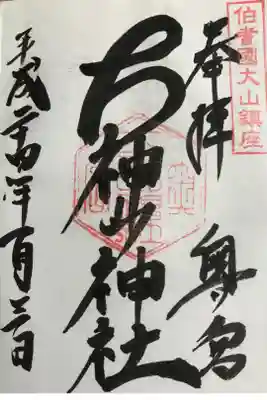 伯耆國大山鎮座
奉拝 奥宮
大神山神社
平成二十四年 月 日